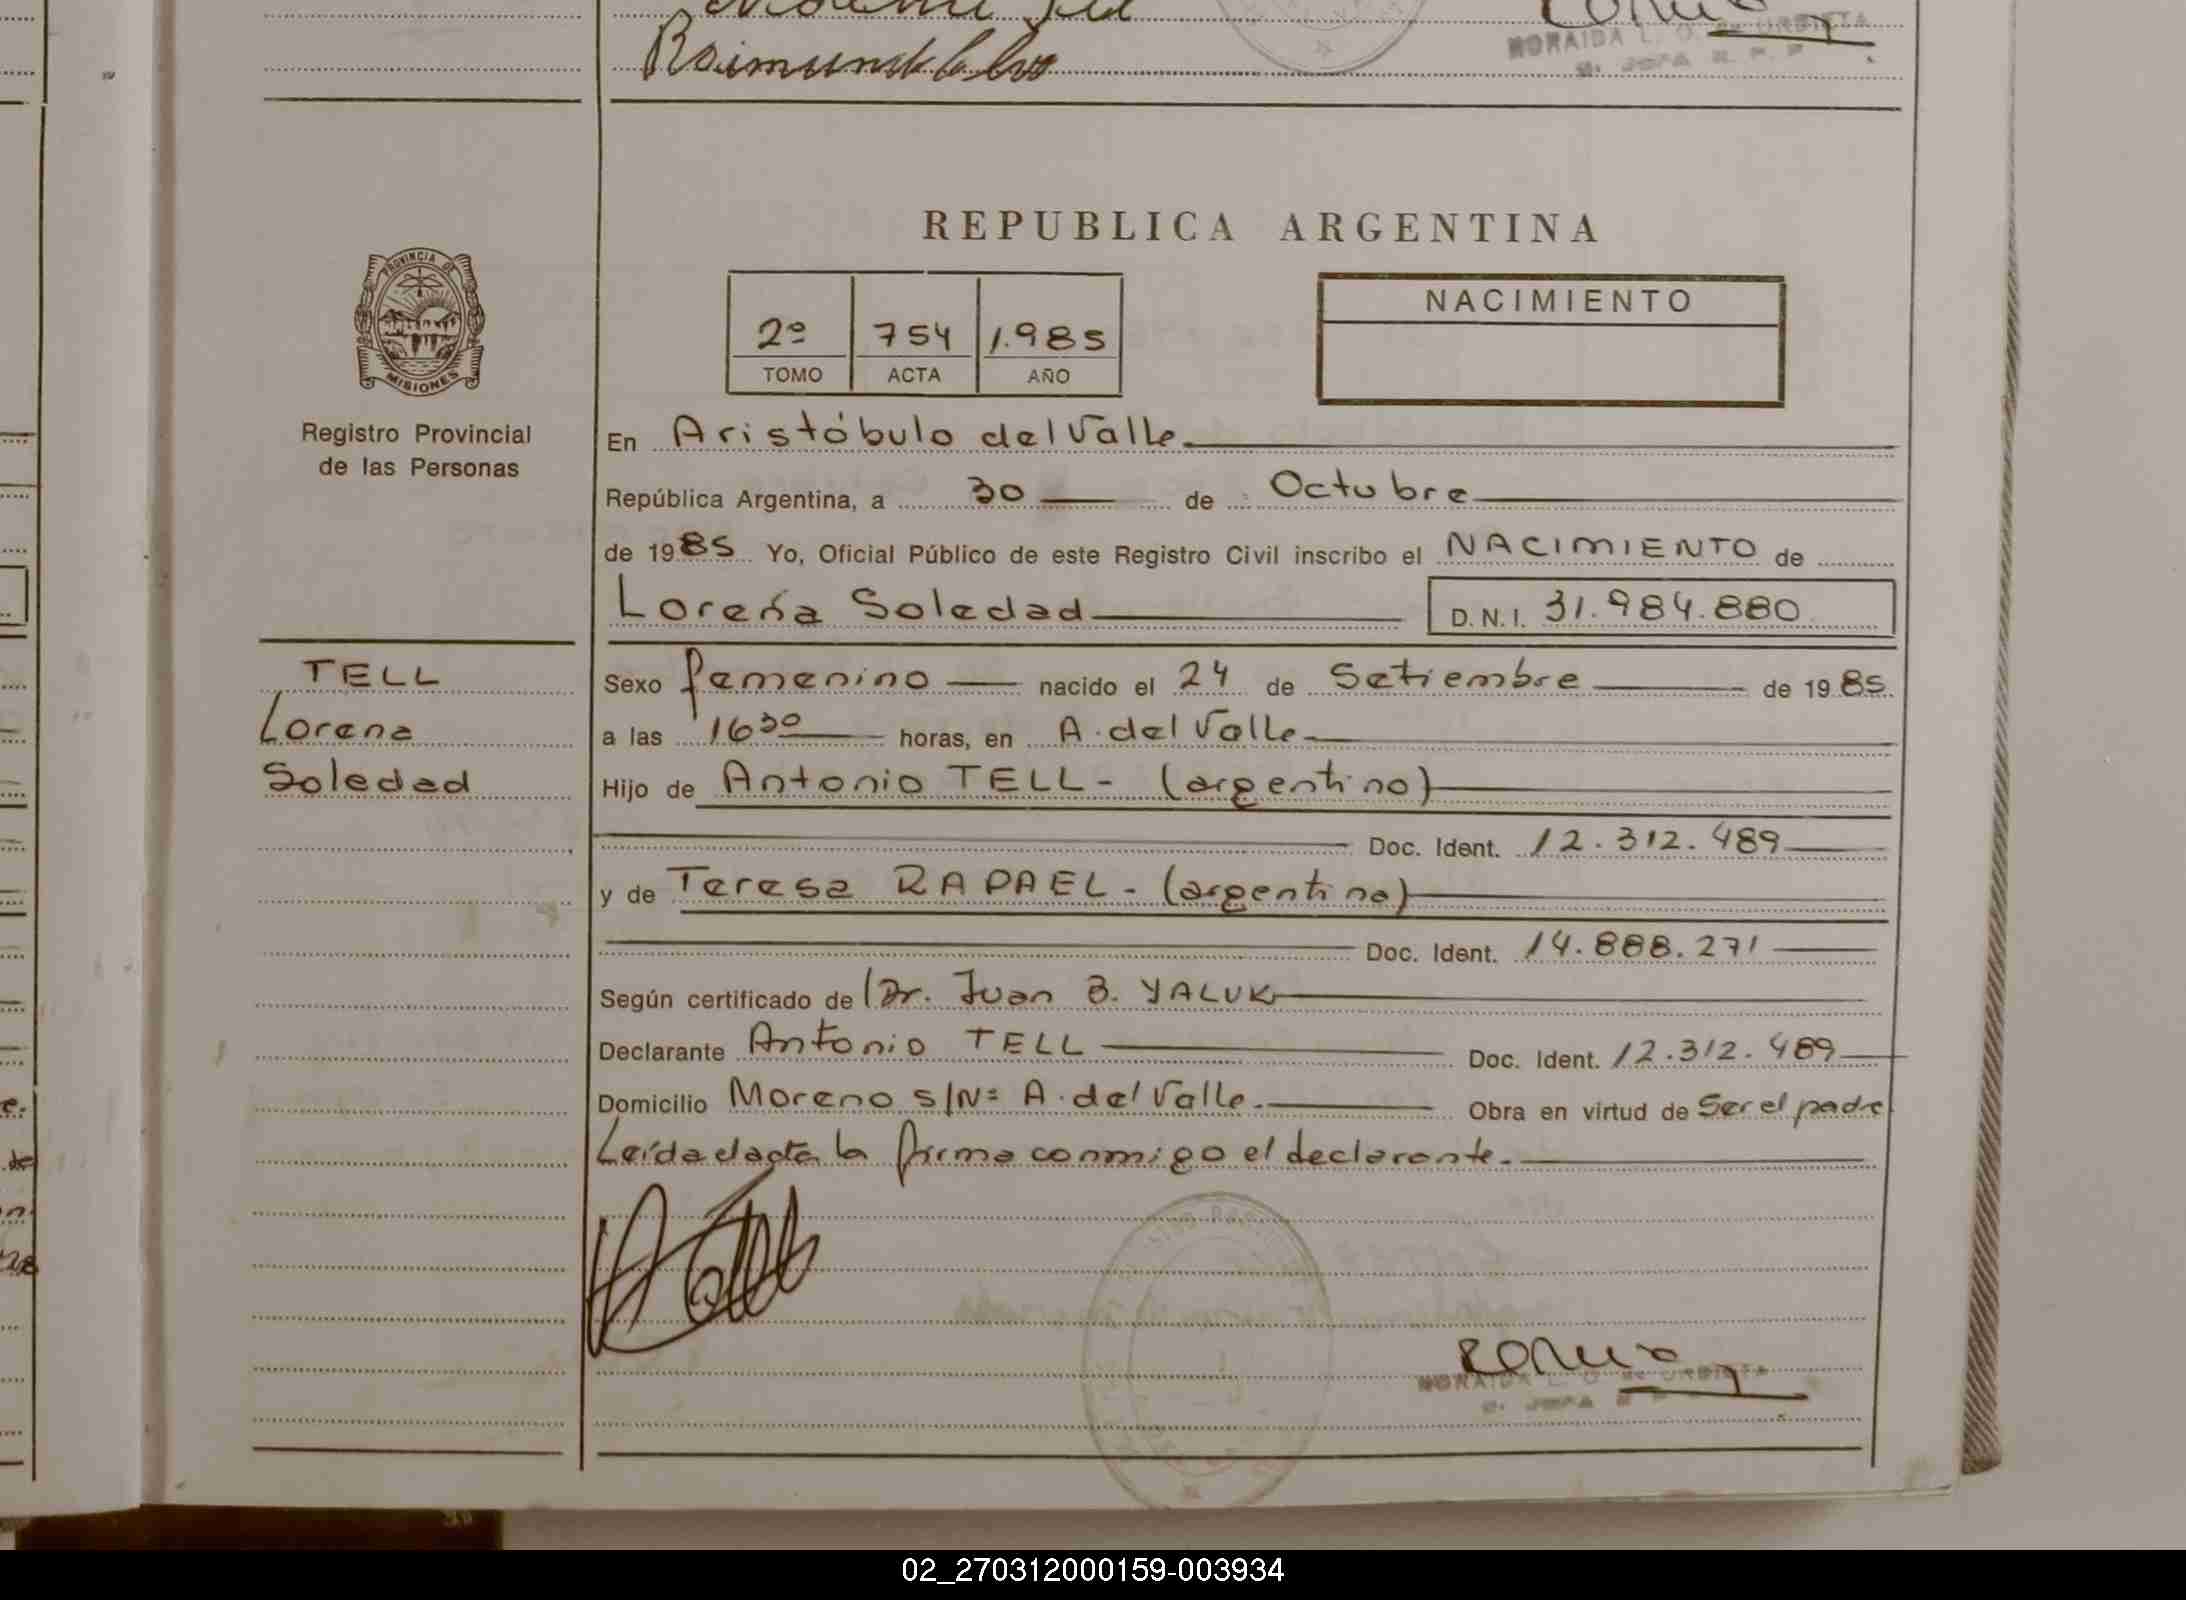 NORAIDA L. O. de URBIETA
REPUBLICA ARGENTINA
PROVINCIA DE
MISIONES
Registro Provincial
de las Personas
2º 754 1.985
TOMO ACTA AÑO
NACIMIENTO
En Aristóbulo del Valle
República Argentina, a 30 de Octubre
de 1985 Yo, Oficial Público de este Registro Civil inscribo el NACIMIENTO de
Lorena Soledad D.N.I. 31.984.880
TELL
Lorena
Soledad
Sexo femenino nacido el 24 de Setiembre de 1985
a las 16 30 horas, en A. del Valle
Hijo de Antonio TELL - (argentino)
Doc. Ident. 12.312.489
y de Teresa RAPAEL - (argentina)
Doc. Ident. 14.888.271
Según certificado de Dr. Juan B. YALUK
Declarante Antonio TELL Doc. Ident. 12.312.489
Domicilio Moreno s/Nº A. del Valle. Obra en virtud de Ser el padre
Leída el acta la firma conmigo el declarante.
NORAIDA L. O. de URBIETA
02_270312000159-003934